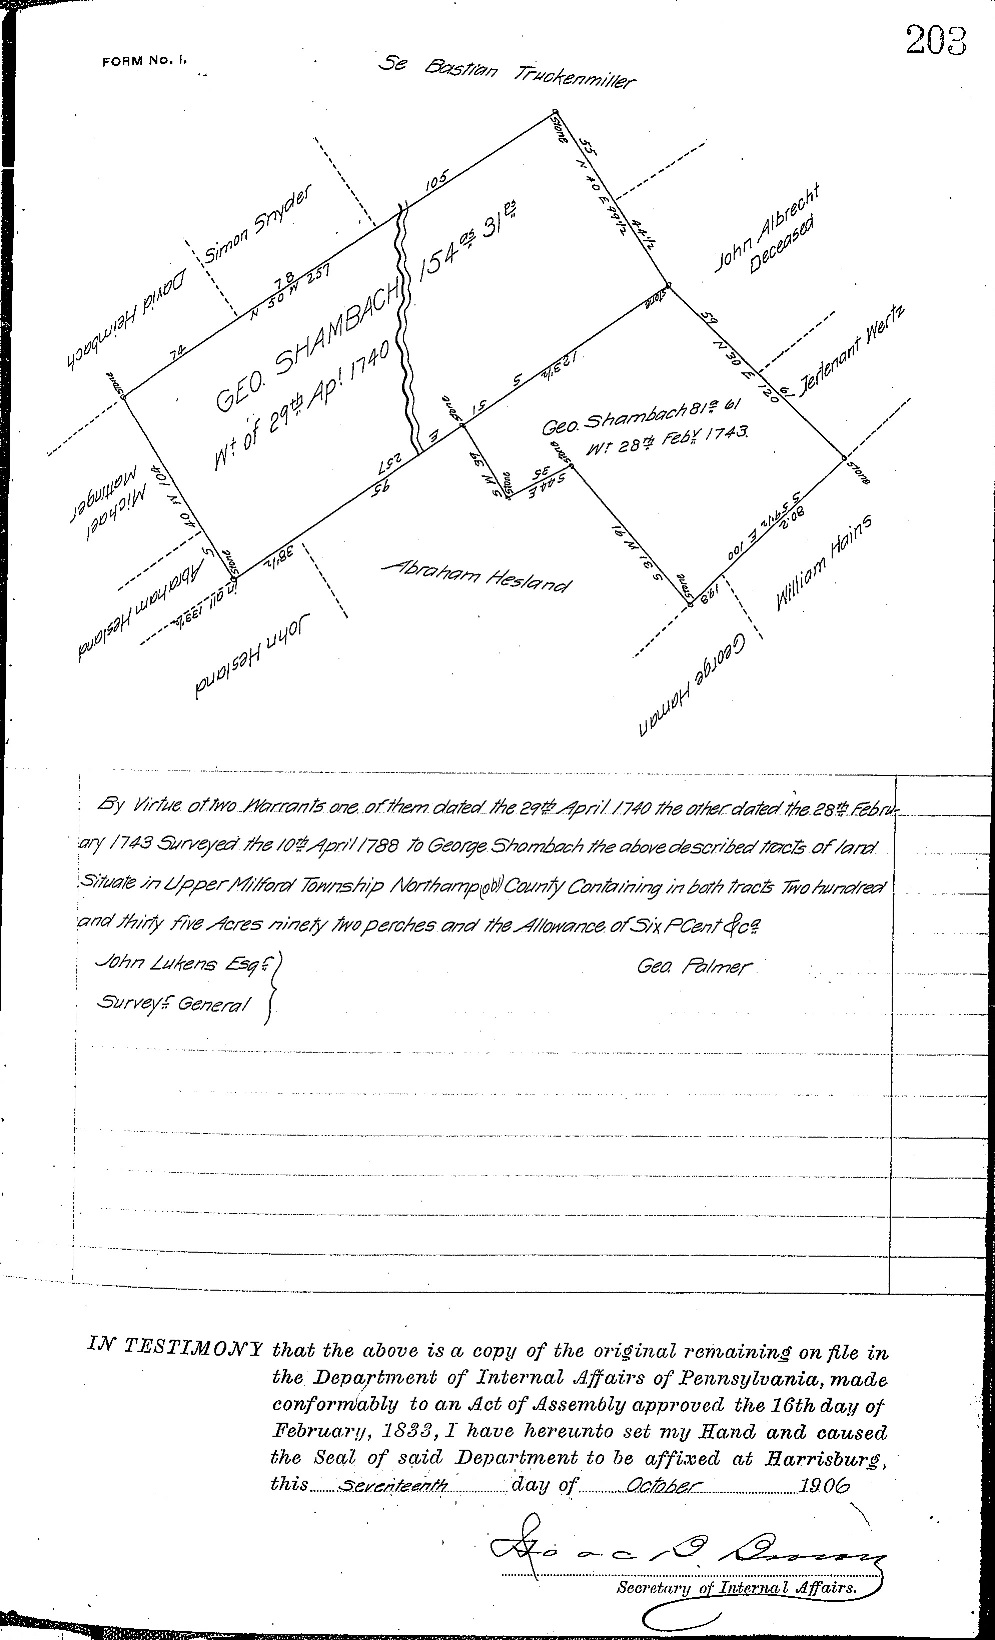 203
FORM No. 1.
Se Bastian Truckenmiller
Stone
55
N 40 E 99 1/2
44 1/2
105
Simon Snyder
David Heimbach
78
N 50 W 257
74
GEO. SHAMBACH 154 as 31 ps
Wt of 29th Apl 1740
John Albrecht
Deceased
Stone
59
N 30 E 120
61
Jerlenant Wertz
Stone
123 1/2
S
51
E
257
95
38 1/2
Geo. Shambach 81a 61
Wt 28th Feby 1743.
Stone
S W 39
Stone
S 44 E
35
Stone
S 31 W 91
Stone
S 59 1/2 E 100
80.2
198
William Hains
George Haman
Abraham Hesland
John Hesland
Stone
Michael
Mattinger
S 40 W 104
Stone
Abraham Hesland
in all 139 1/2
By Virtue of two Warrants one of them dated the 29th April 1740 the other dated the 28th Febru-
ary 1743 Surveyed the 10th April 1788 to George Shombach the above described tracts of land
Situate in Upper Milford Township Northamp(ob) County Containing in both tracts Two hundred
and thirty five Acres ninety two perches and the Allowance of Six P Cent &ca
John Lukens Esqr
Geo. Palmer
Surveyr General
IN TESTIMONY that the above is a copy of the original remaining on file in
the Department of Internal Affairs of Pennsylvania, made
conformably to an Act of Assembly approved the 16th day of
February, 1833, I have hereunto set my Hand and caused
the Seal of said Department to be affixed at Harrisburg,
this Seventeenth day of October 1906
Isaac B. Brown
Secretary of Internal Affairs.